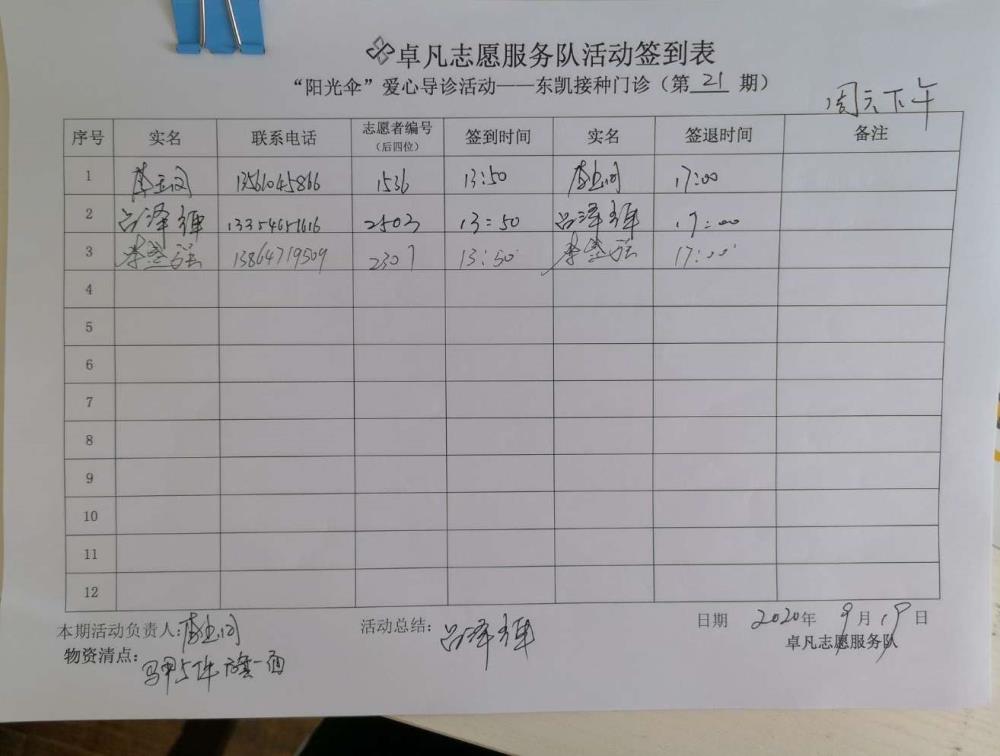 卓凡志愿服务队活动签到表
“阳光伞”爱心导诊活动——东凯接种门诊（第 21 期）
周六下午
序号 实名 联系电话 志愿者编号（后四位） 签到时间 实名 签退时间 备注
1 13561045866 1536 13:50 17:00
2 吕泽 13354651616 2503 13:50 吕泽 17:00
3 李 13864719509 2307 13:50 李 17:00
4
5
6
7
8
9
10
11
12
本期活动负责人: 活动总结: 吕泽 日期 2020年 9月19日
物资清点: 马甲5件 旗一面 卓凡志愿服务队